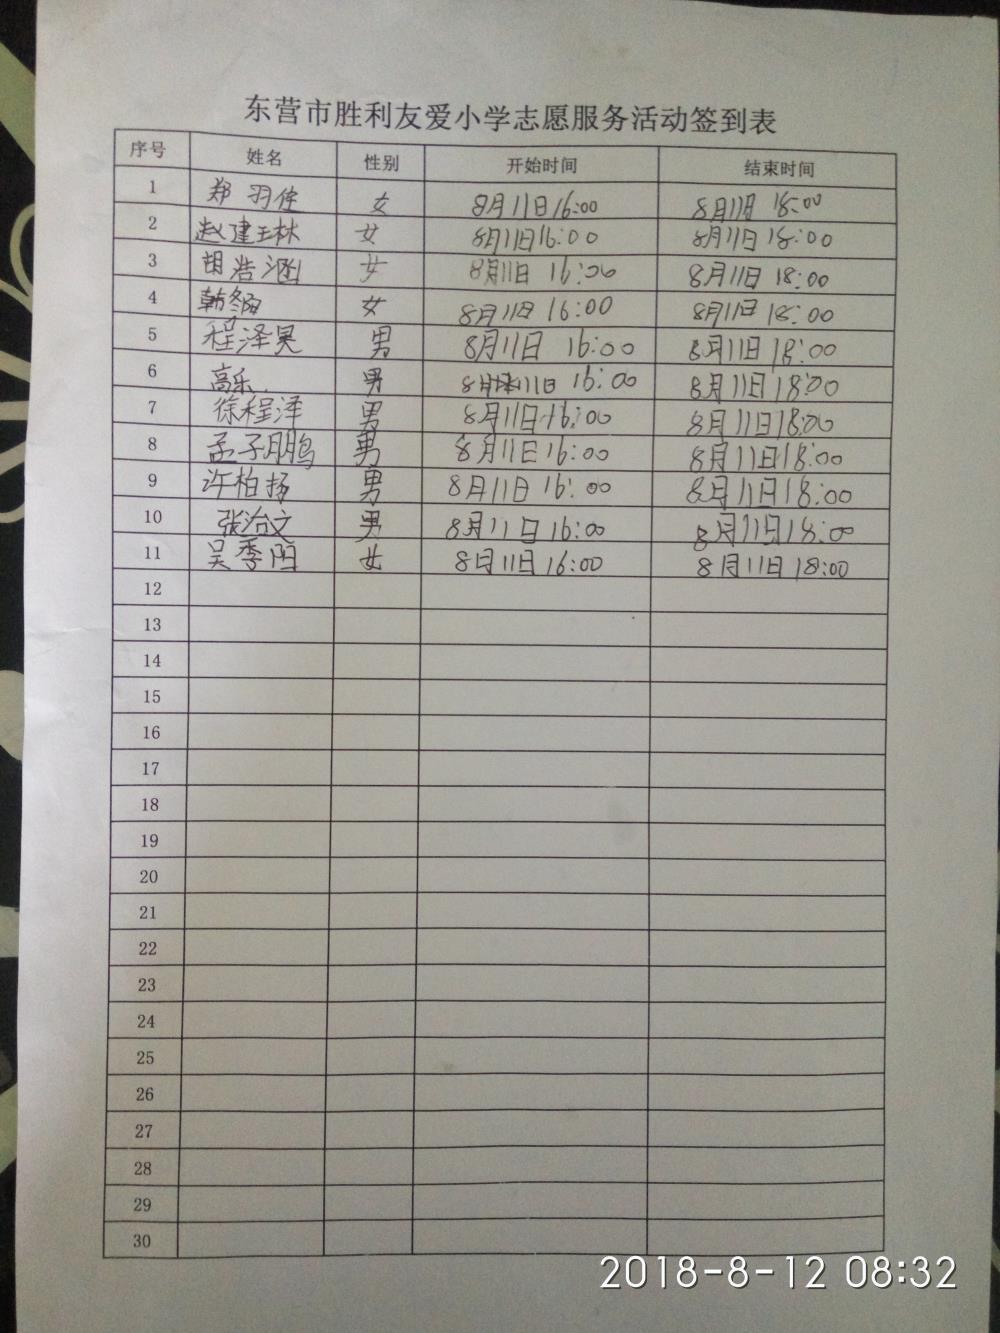 东营市胜利友爱小学志愿服务活动签到表
序号 姓名 性别 开始时间 结束时间
1 郑羽佳 女 8月11日16:00 8月11日 18:00
2 赵建琳 女 8月11日16:00 8月11日 18:00
3 胡浩涵 女 8月11日 16:00 8月11日 18:00
4 韩 女 8月11日 16:00 8月11日 18:00
5 程泽昊 男 8月11日 16:00 8月11日 18:00
6 高乐 男 8月11日 16:00 8月11日18:00
7 徐程泽 男 8月11日16:00 8月11日18:00
8 孟子鹏 男 8月11日16:00 8月11日18:00
9 许柏扬 男 8月11日 16:00 8月11日18:00
10 张洽文 男 8月11日16:00 8月11日18:00
11 吴季阳 女 8月11日16:00 8月11日18:00
12
13
14
15
16
17
18
19
20
21
22
23
24
25
26
27
28
29
30
2018-8-12 08:32